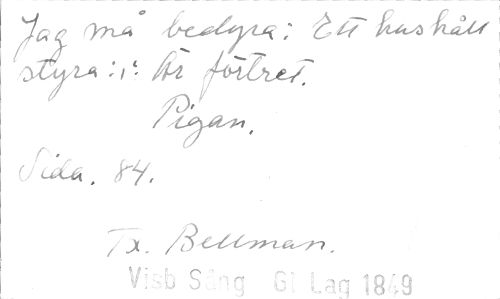 Jag må bedyra: Ett hushåll
styra :,: är förtret.
Pigan.
Sida. 84.
Tx. Bellman.
Visb Sång Gl Lag 1849